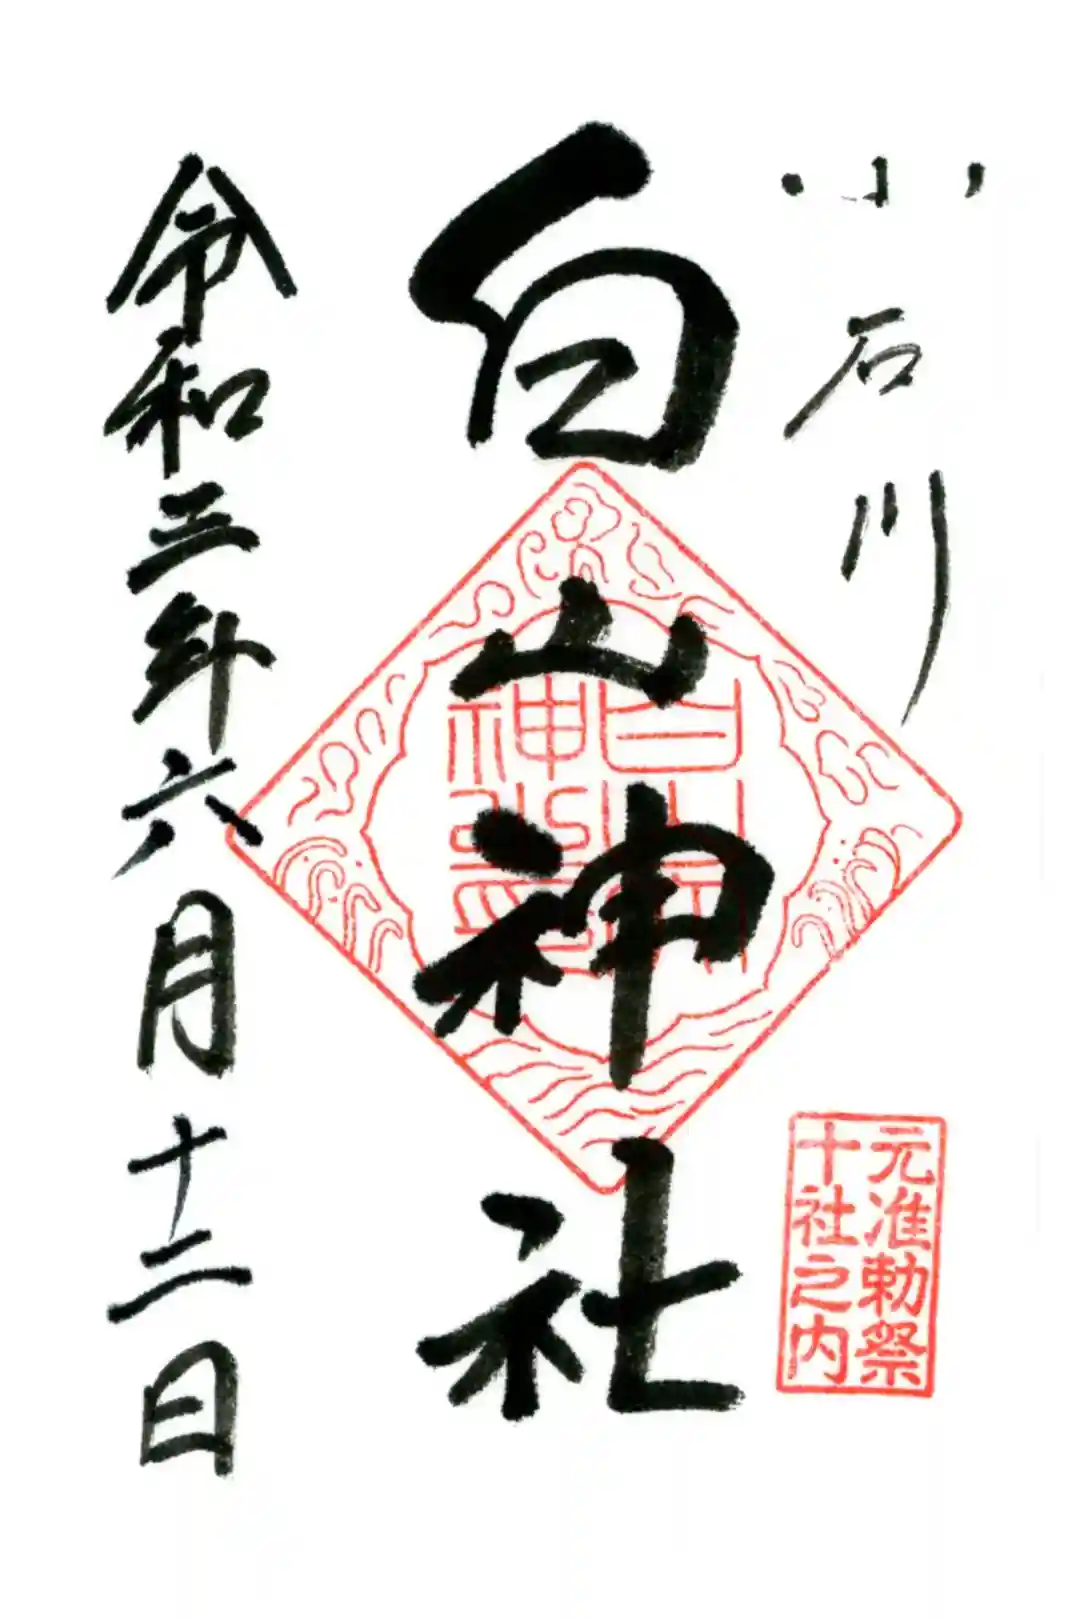 小石川
白山神社
令和三年六月十二日
元准勅祭
十社之内